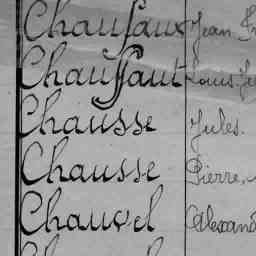 Chaussaux Jean
Chaussaut Louis
Chausse Jules.
Chausse Pierre,
Chauvel